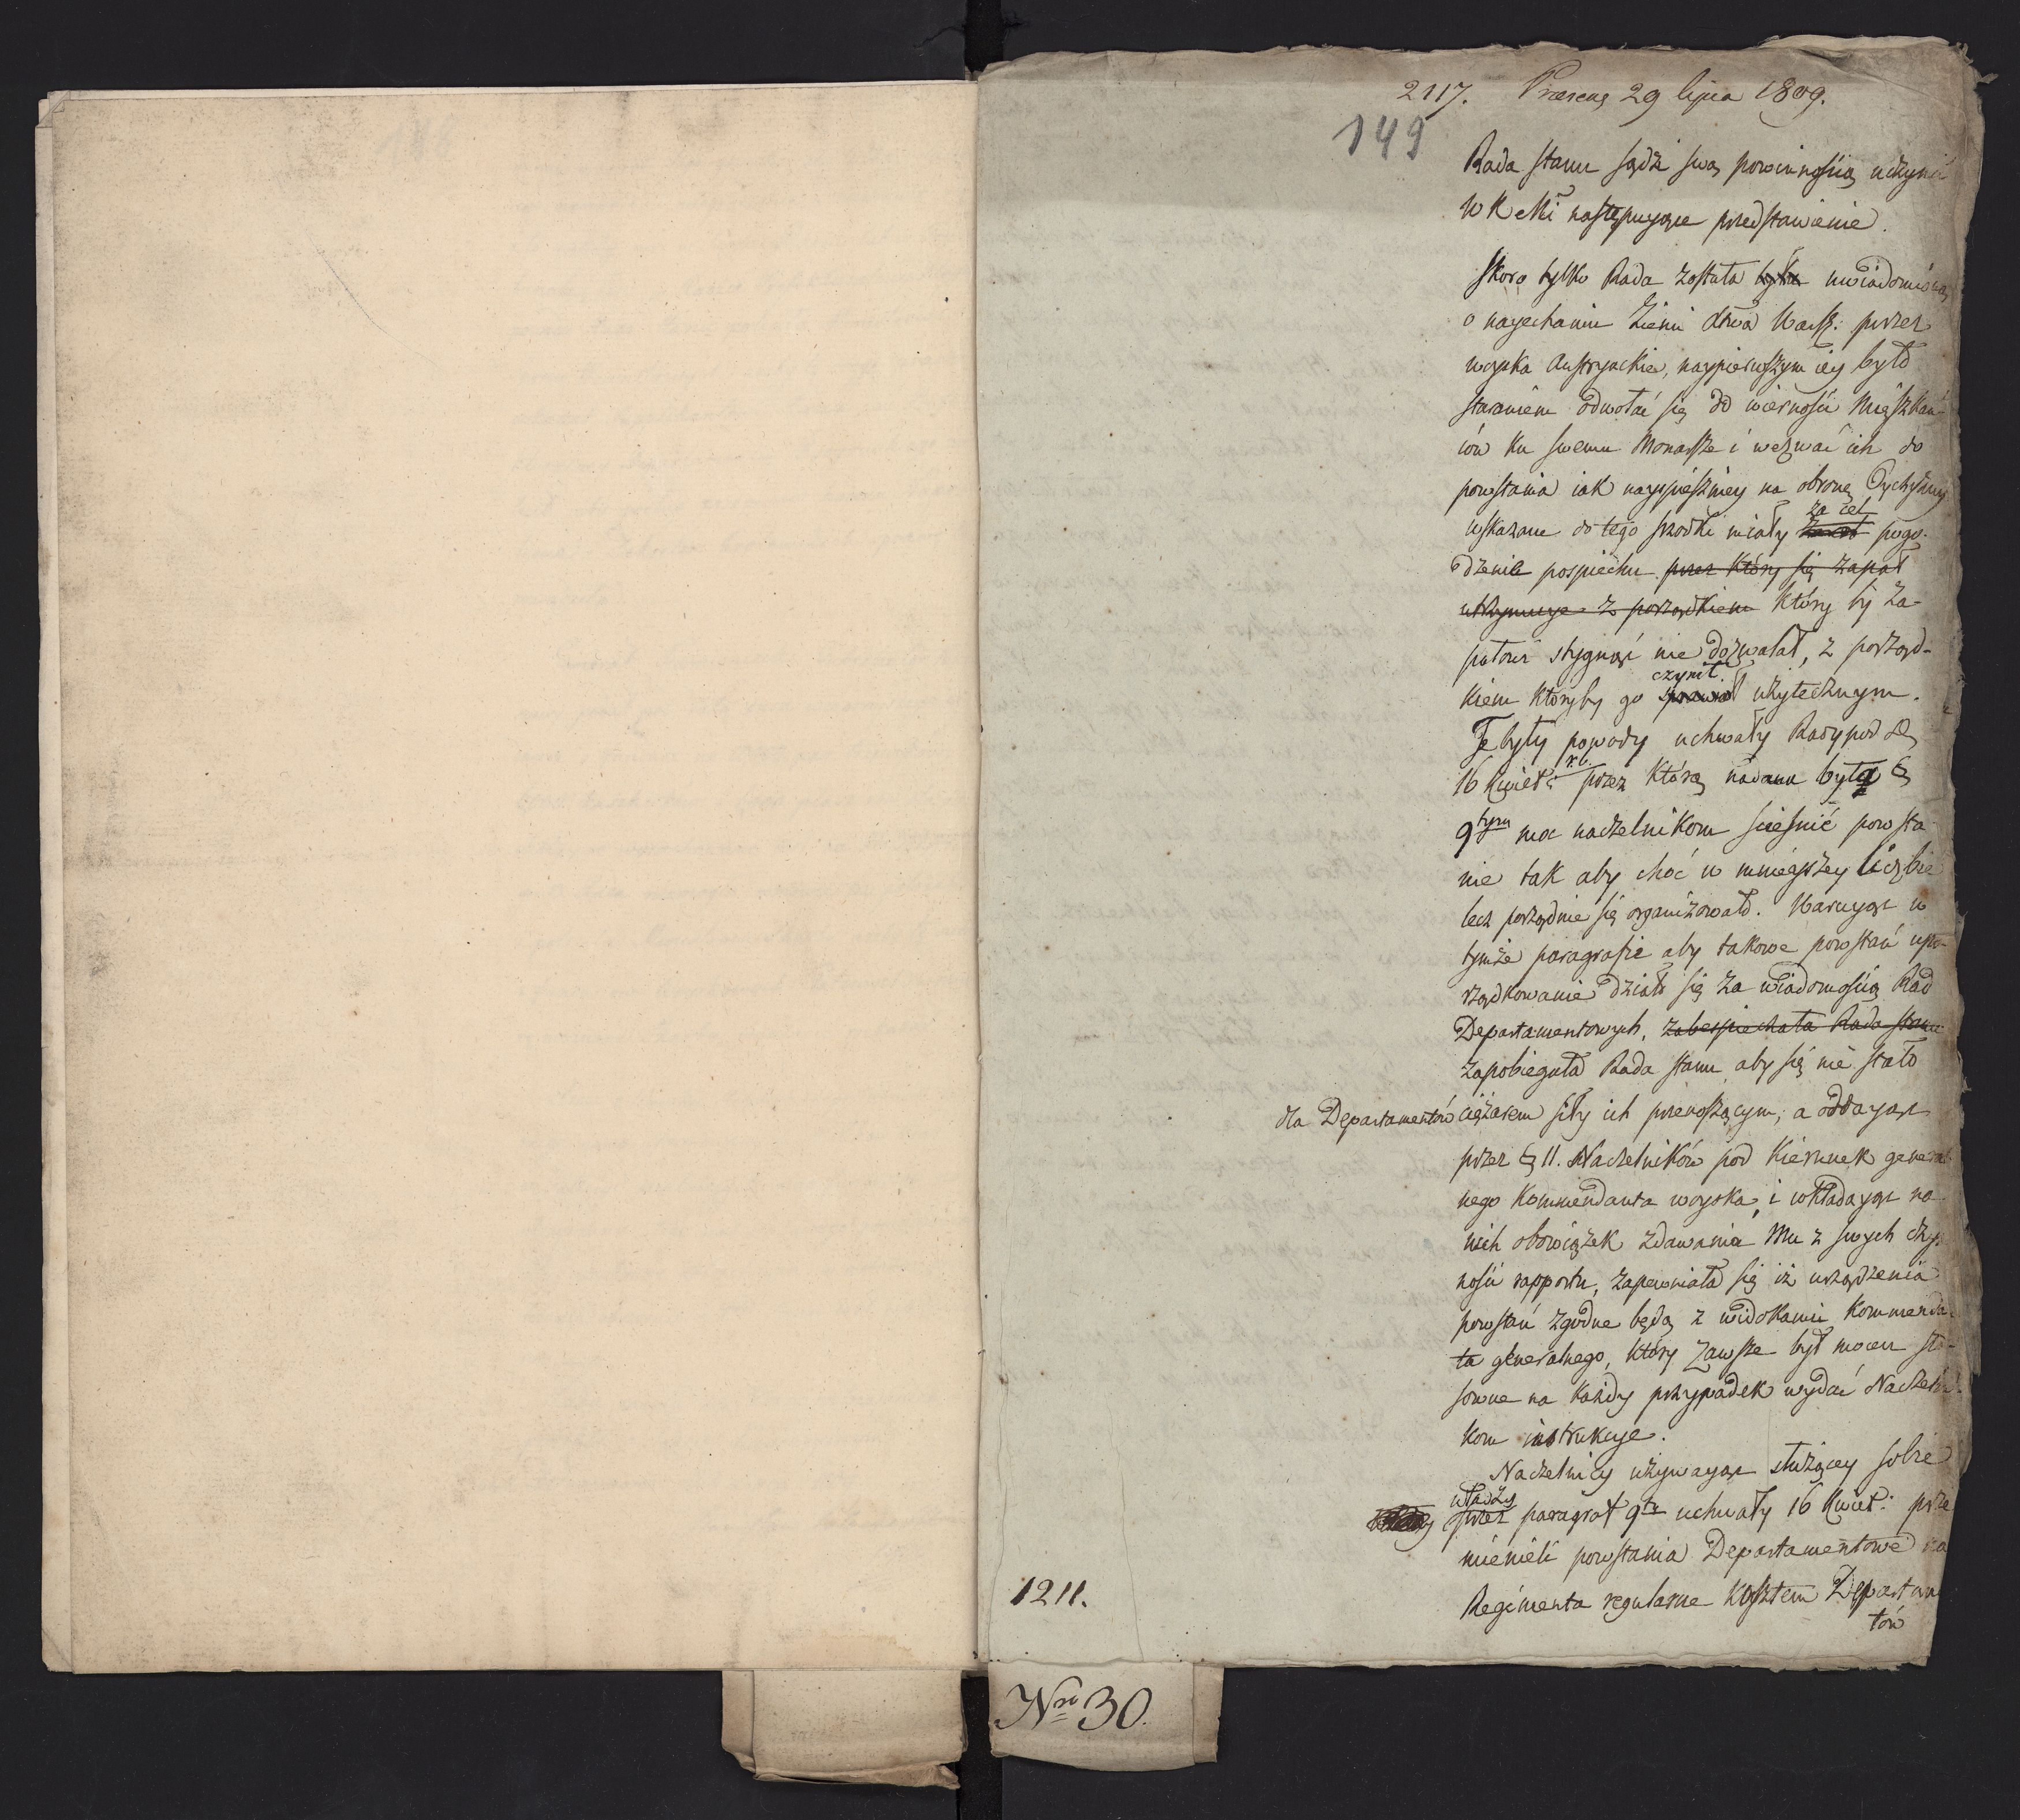 2117. Præsens 29 lipca 1809.
149
Rada stanu sądzi swą powinnością uczynić
W K Mci następuiące przedstawienie.
Skoro tylko Rada została była uwiadomioną
o naiechaniu Ziemi Xtwa Warsz: przez
woyska Austryackie, naypierwszym iey było
staraniem odwołać się do wierności Mieszkań-
ców ku swemu Monarsze i wezwać ich do
powstania iak nayspieszniey na obronę Oyczyzny
za cel
wskazane do tego srzodki miały pogo-
dzenie pospiechu przez który się zapał
utrzymuye z porządkiem który by za-
pałowi stygnąć nie dozwalał, z porząd-
czynił
kiem któryby go sprawiał użytecznym.
Te były powody uchwały Rady pod d.
r. b.
16 Kwiet: przez którą nadana była §
9tym moc naczelnikom ścieśnić powsta-
nie tak aby choć w mnieyszey liczbie
lecz porządnie się organizowało. Waruiąc w
tymże paragrafie aby takowe powstań upo-
rządkowanie działo się za wiadomością Rad
Departamentowych, zabespieczała Rada stanu
zapobiegała Rada stanu, aby się nie stało
dla Departamentów ciężarem siły ich przenoszącym, a oddaiąc
przez § 11. Naczelników pod kierunek general-
nego Kommendanta woyska, i wkładaiąc na
nich obowiązek zdawania Mu z swych czyn-
ności rapportu, zapewniała się iż urządzenia
powstań zgodne będą z widokami Kommendan-
ta generalnego, który zawsze był mocen sto-
sowne na każdy przypadek wydać Naczelni-
kom instrukcye.
Naczelnicy używaiąc służącey sobie
władzy
przez paragraf 9ty uchwały 16 Kwiet: prze
mienili powstania Departamentowe na
Regimenta regularne kosztem Departamen
tów
1211.
Nro 30.